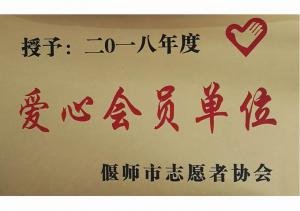 授予：二0一八年度
爱心会员单位
偃师市志愿者协会